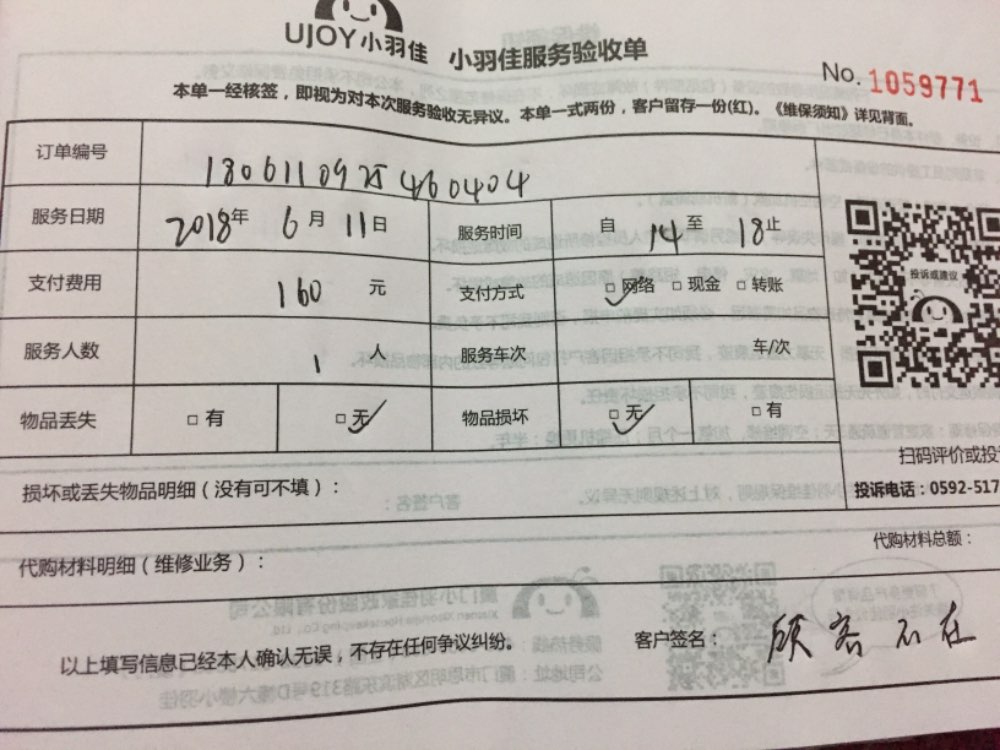 UJOY小羽佳 小羽佳服务验收单
No. 1059771
本单一经核签，即视为对本次服务验收无异议。本单一式两份，客户留存一份(红)。《维保须知》详见背面。
订单编号 18061109254604​04
服务日期 2018年 6月 11日 服务时间 自 14 至 18止
支付费用 160 元 支付方式 □网络 □现金 □转账
投诉或建议
服务人数 1 人 服务车次 车/次
物品丢失 □有 □无 物品损坏 □无 □有
扫码评价或投
损坏或丢失物品明细（没有可不填）：
投诉电话：0592-517
代购材料明细（维修业务）： 代购材料总额：
以上填写信息已经本人确认无误，不存在任何争议纠纷。 客户签名： 顾客不在